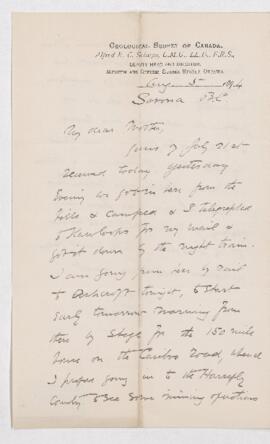 GEOLOGICAL SURVEY OF CANADA.
Alfred R. C. Selwyn, C.M.G., LL.D., F.R.S.,
DEPUTY HEAD AND DIRECTOR.
MUSEUM AND OFFICE: SUSSEX STREET, OTTAWA.
Aug. 5 1894
Savona B.C.
My dear Mother,
Yours of July 21st
received today. Yesterday
Evening we got in here from the
hills & camped & I telegraphed
to Kamloops for my mail &
got it down by the night train.
I am going from here by rail
to Ashcroft tonight, to start
early tomorrow morning from
there by Stage for the 150 mile
house on the Cariboo Road, whence
I propose going in to the Horsefly
Country to see some mining operations